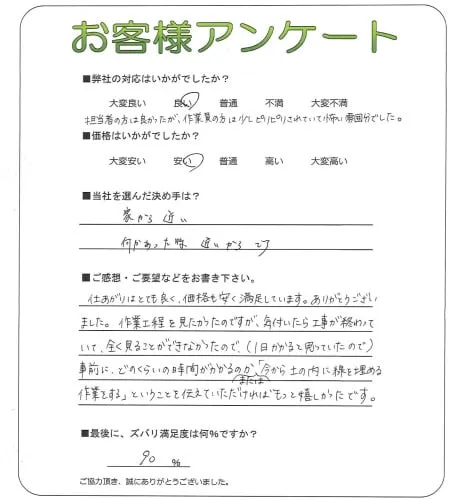 お客様アンケート
■弊社の対応はいかがでしたか？
大変良い 良い 普通 不満 大変不満
担当者の方は良かったが、作業員の方は少しピリピリされていて怖い雰囲気でした。
■価格はいかがでしたか？
大変安い 安い 普通 高い 大変高い
■当社を選んだ決め手は？
家から近い
何かあった時近いからです
■ご感想・ご要望などをお書き下さい。
仕あがりはとても良く、価格も安く満足しています。ありがとうござい
ました。作業工程を見たかったのですが、気付いたら工事が終わって
いて、全く見ることができなかったので、(1日かかると思っていたので)
事前に、どのくらいの時間がかかるのか、「今から土の内に線を埋める
または
作業をする」ということを伝えていただければもっと嬉しかったです。
■最後に、ズバリ満足度は何%ですか？
90 %
ご協力頂き、誠にありがとうございました。